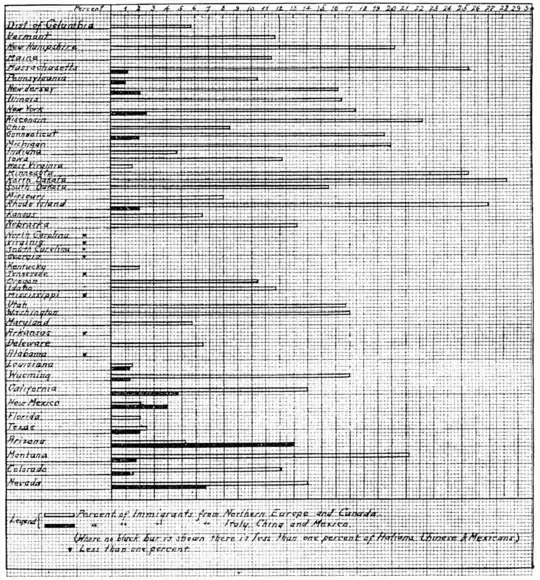 Percent 1 2 3 4 5 6 7 8 9 10 11 12 13 14 15 16 17 18 19 20 21 22 23 24 25 26 27 28 29 30
Dist of Columbia
Vermont
New Hampshire
Maine
Massachusetts
Pennsylvania
New Jersey
Illinois
New York
Wisconsin
Ohio
Connecticut
Michigan
Indiana
Iowa
West Virginia
Minnesota
North Dakota
South Dakota
Missouri
Rhode Island
Kansas
Nebraska
North Carolina *
Virginia *
South Carolina *
Georgia *
Kentucky
Tennessee *
Oregon
Idaho
Mississippi *
Utah
Washington
Maryland
Arkansas *
Deleware
Alabama *
Louisiana
Wyoming
California
New Mexico
Florida
Texas
Arizona
Montana
Colorado
Nevada
Legend Percent of Immigrants from Northern Europe and Canada
" " " " Italy, China and Mexico
(Where no black bar is shown there is less than one percent of Italians, Chinese & Mexicans)
* Less than one percent